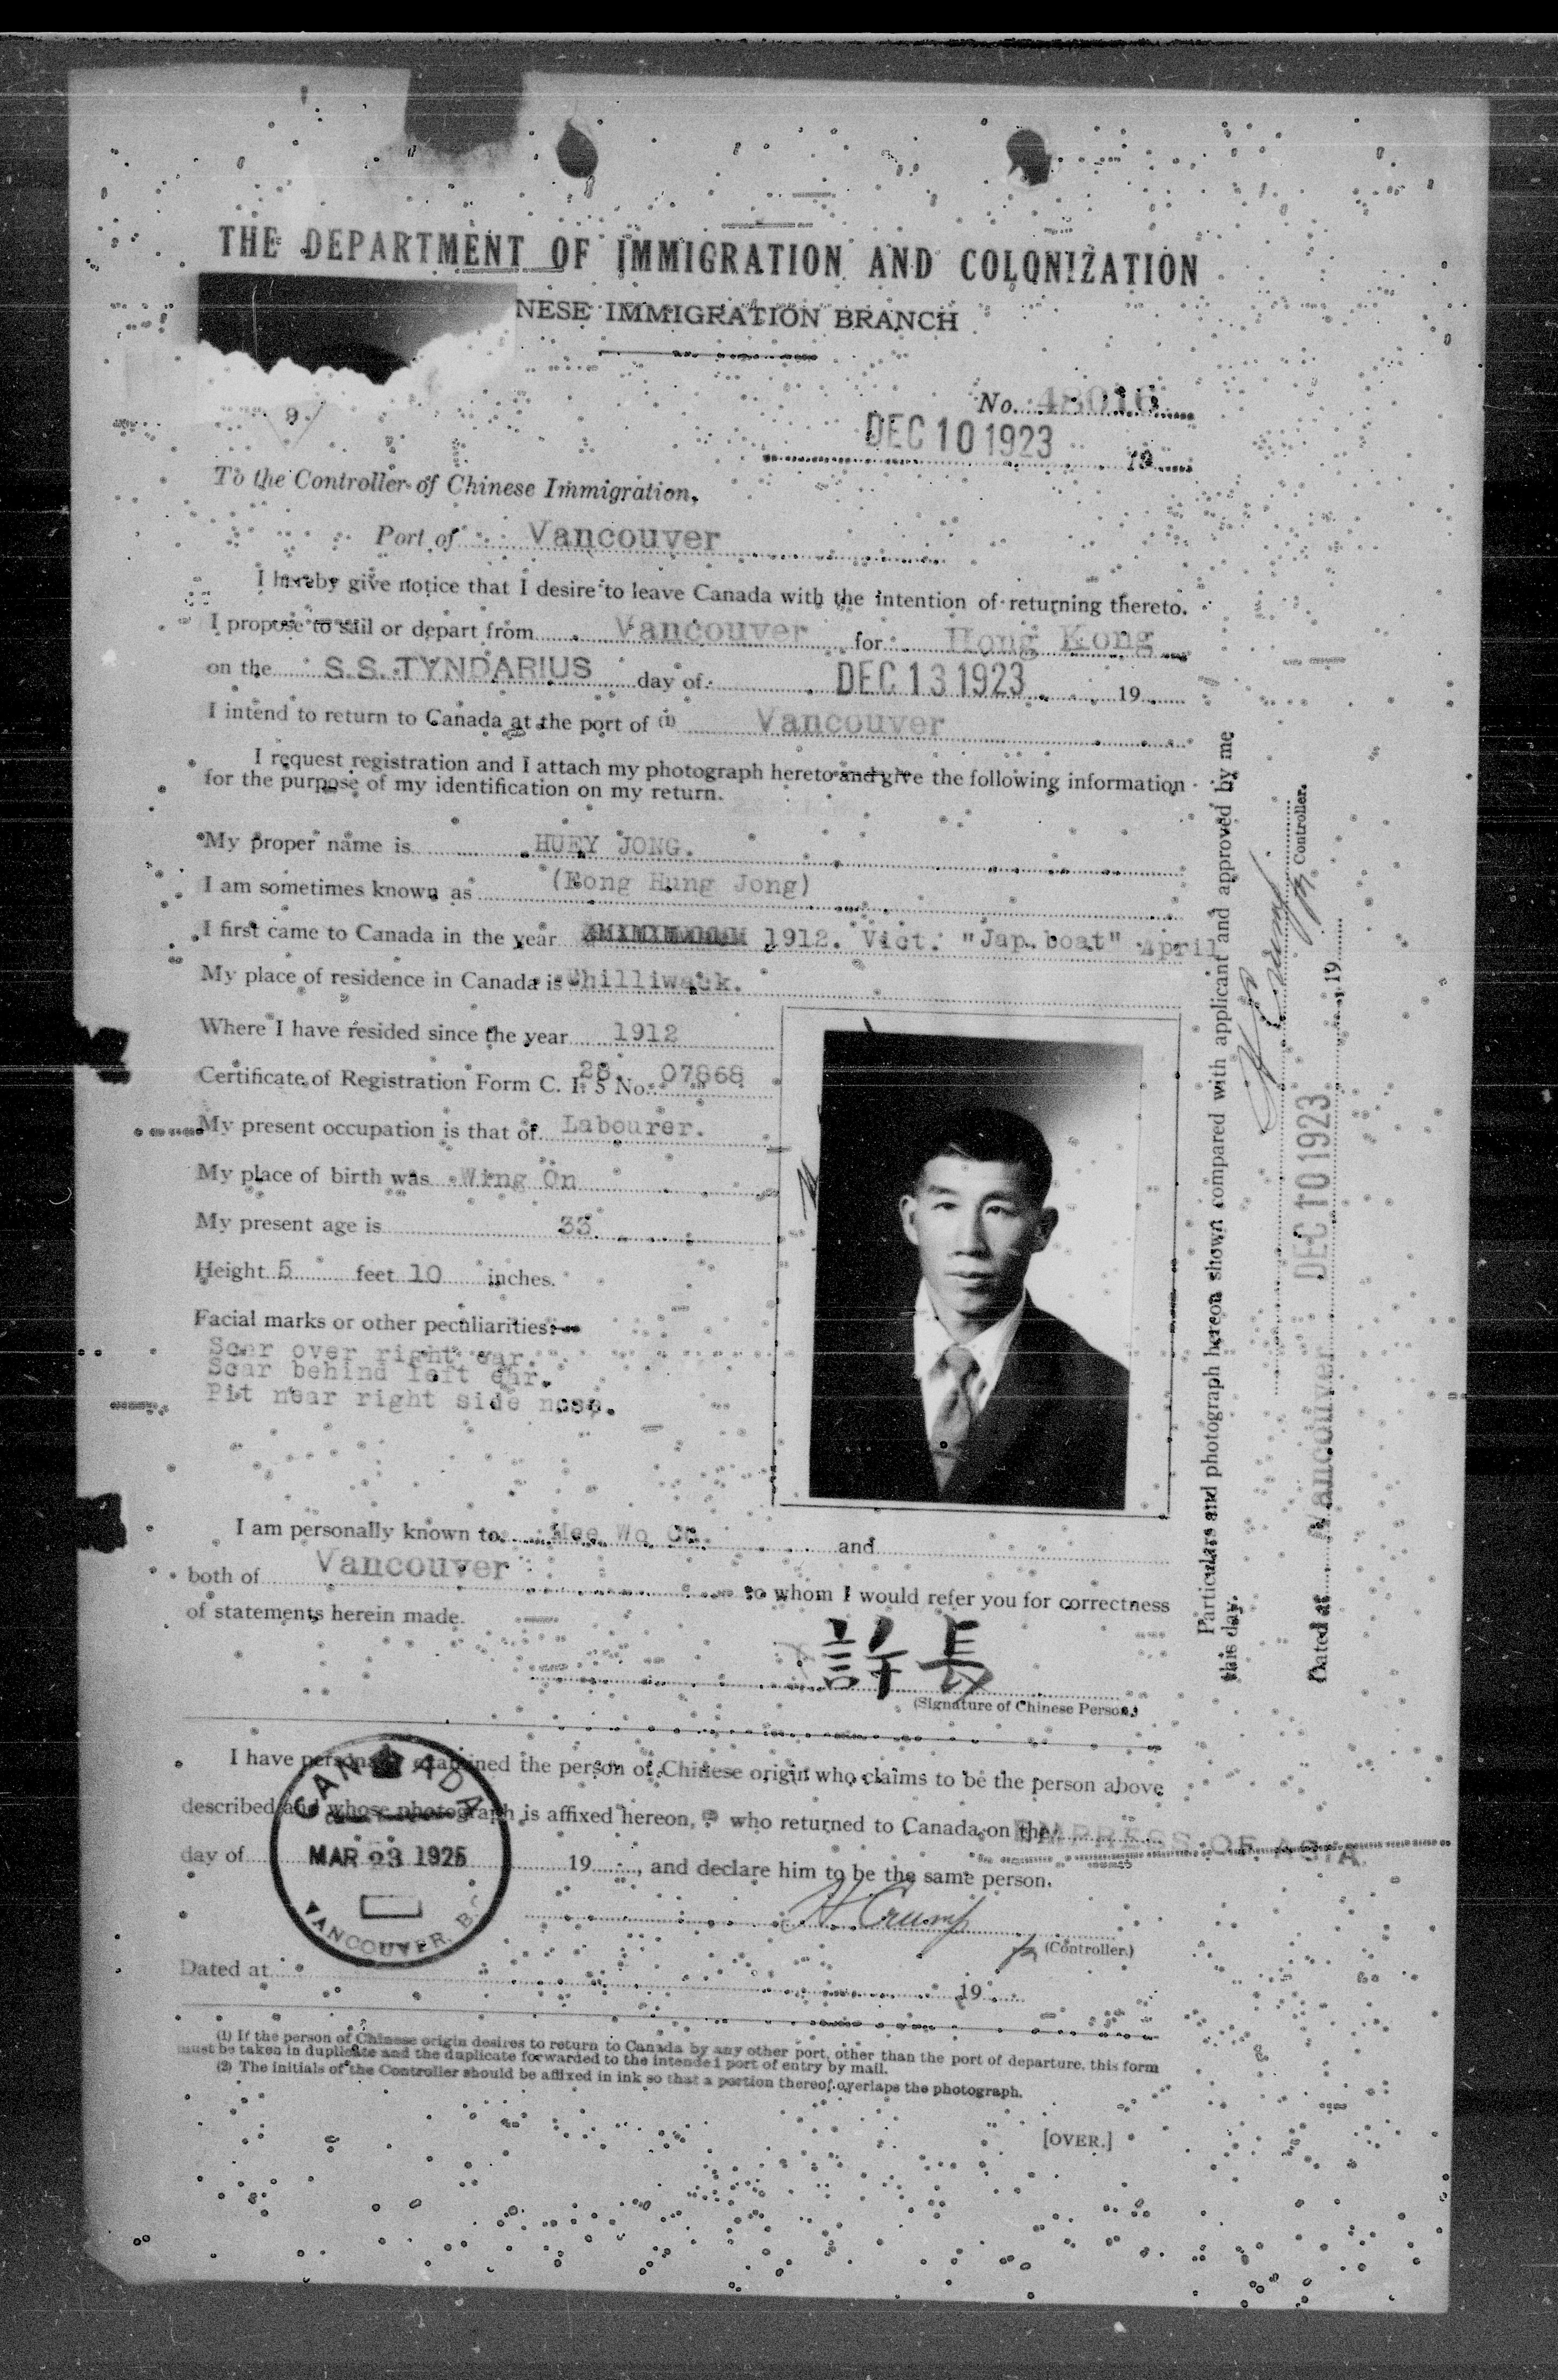 THE DEPARTMENT OF IMMIGRATION AND COLONIZATION
NESE IMMIGRATION BRANCH
9
No. 48016
DEC 10 1923 19
To the Controller of Chinese Immigration,
Port of Vancouver
I hereby give notice that I desire to leave Canada with the intention of returning thereto.
I propose to sail or depart from Vancouver for Hong Kong
on the S.S. TYNDARIUS day of DEC 13 1923 19
I intend to return to Canada at the port of (1) Vancouver
I request registration and I attach my photograph hereto and give the following information
for the purpose of my identification on my return.
My proper name is HUEY JONG.
I am sometimes known as (Hung Jong)
I first came to Canada in the year 1912. Vict. "Jap. boat" April
My place of residence in Canada is Chilliwack.
Where I have resided since the year 1912
Certificate of Registration Form C. I. 5 No. 28. 07868
My present occupation is that of Labourer.
My place of birth was Wing On
My present age is 33.
Height 5 feet 10 inches.
Facial marks or other peculiarities:—
Scar over right ear.
Scar behind left ear.
Pit near right side nose.
I am personally known to Mee Wo Co. and
both of Vancouver to whom I would refer you for correctness
of statements herein made.
許長
(Signature of Chinese Person.)
I have personally examined the person of Chinese origin who claims to be the person above
described and whose photograph is affixed hereon, who returned to Canada on the EMPRESS OF ASIA
day of 19 , and declare him to be the same person.
H Crump
(Controller.)
Dated at 19
CANADA
MAR 23 1925
VANCOUVER, B.C.
(1) If the person of Chinese origin desires to return to Canada by any other port, other than the port of departure, this form
must be taken in duplicate and the duplicate forwarded to the intended port of entry by mail.
(2) The initials of the Controller should be affixed in ink so that a portion thereof overlaps the photograph.
[OVER.]
Particulars and photograph hereon shown compared with applicant and approved by me
this day.
H Crump
Controller.
Dated at Vancouver DEC 10 1923 , 19